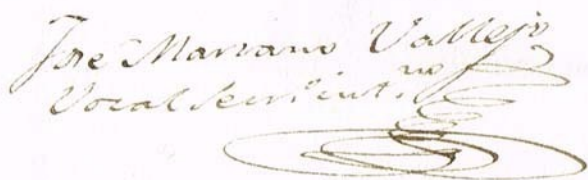 Jose Mariano Vallejo
Vocal Secret.no int.no